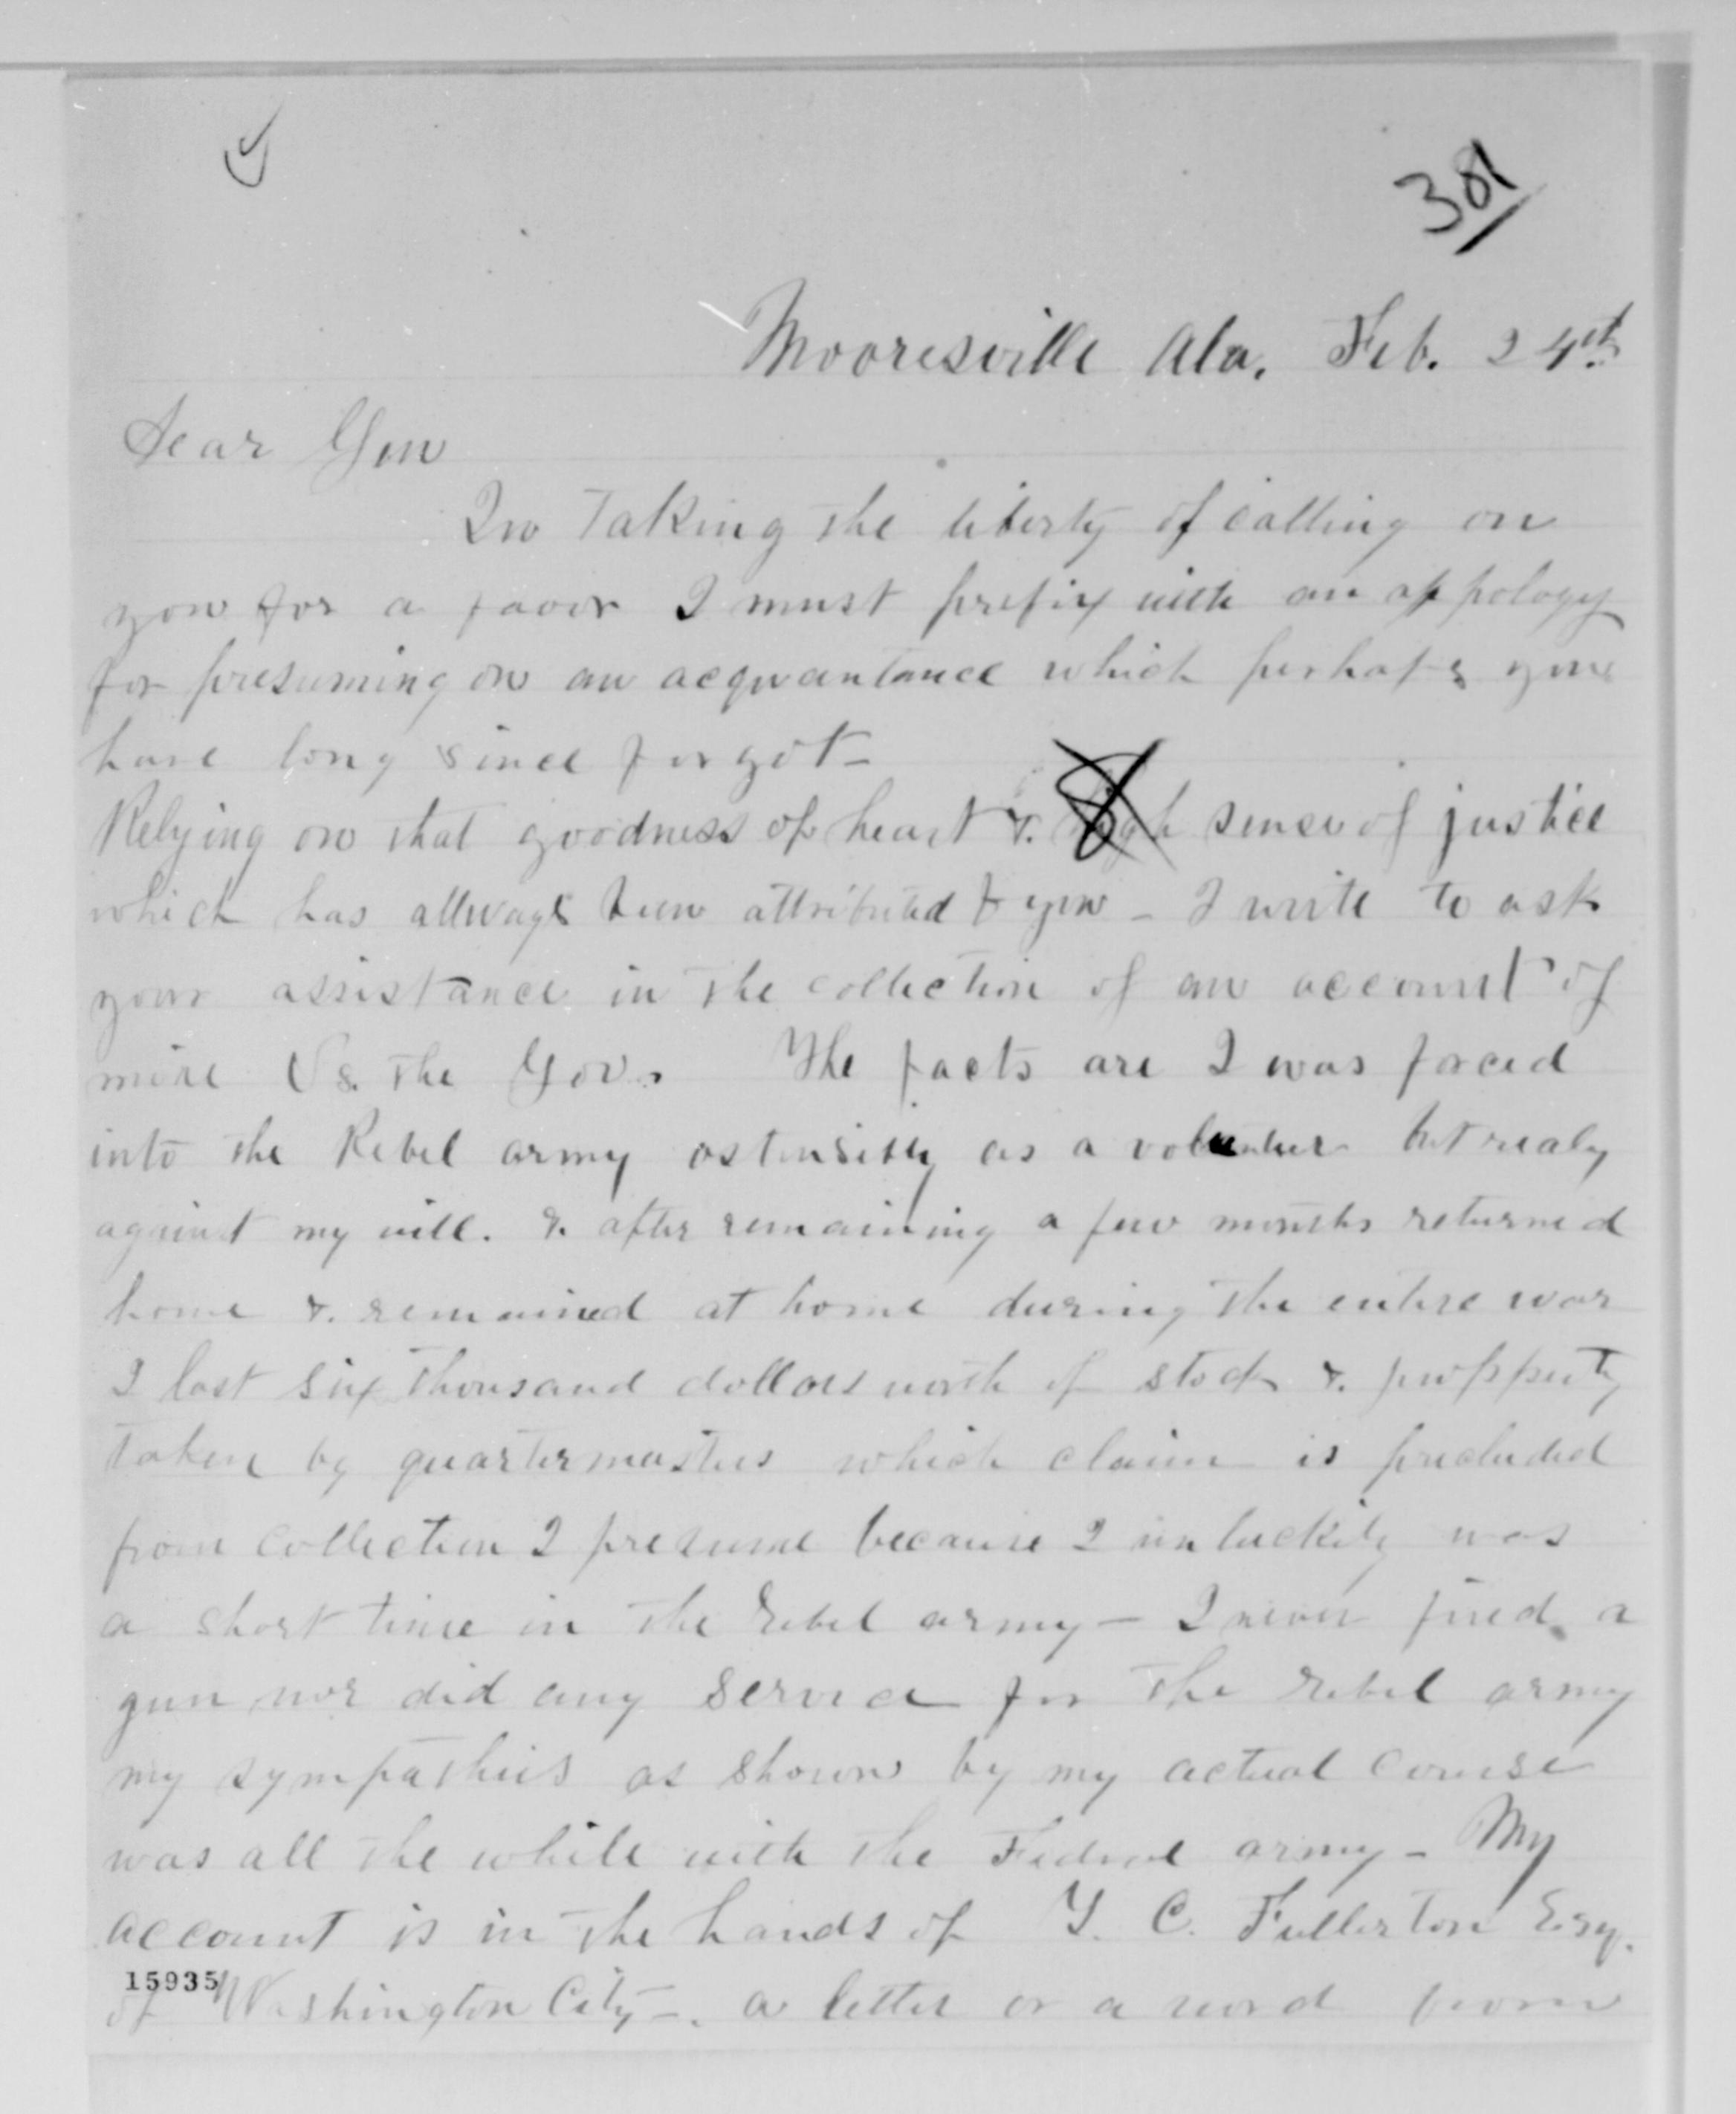 381
Mooresville Ala. Feb. 24th
Dear Gen
In taking the liberty of calling on
you for a favor I must prefix with an appology
for presuming on an acquantance which perhaps you
have long since forgot -
Relying on that goodness of heart & high sense of justice
which has allways been attributed to you - I write to ask
your assistance in the collection of an account of
mine Vs. the Gov. The facts are I was forced
into the Rebel army ostensibly as a volunteer but realy
against my will. & after remaining a few months returned
home & remained at home during the entire war
I lost six thousand dollars worth of stock & propperty
taken by quartermasters which claim is precluded
from collection I presume because I unluckily was
a short time in the rebel army - I never fired a
gun nor did any service for the rebel army
my sympathies as shown by my actual course
was all the while with the Federal army - My
account is in the hands of Y. C. Fullerton Esq.
15935
of Washington City -. a letter or a word from